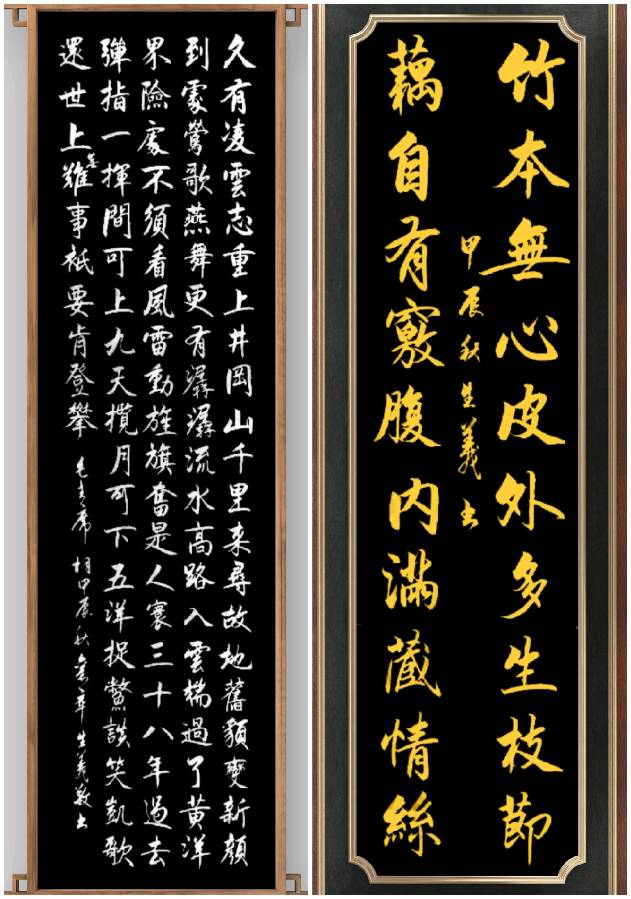 久有凌雲志重上井岡山千里来尋故地舊貌變新顏
到處鶯歌燕舞更有潺潺流水高路入雲端過了黃洋
界險處不須看風雷動旌旗奮是人寰三十八年過去
彈指一揮間可上九天攬月可下五洋捉鱉談笑凱歌
還世上無難事衹要肯登攀 毛主席 詞甲辰秋 生義敬书
竹本無心皮外多生枝節
藕自有竅腹内滿藏情絲
甲辰秋生義书